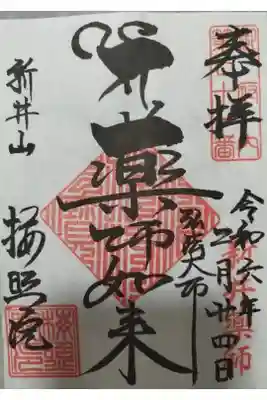 奉拝
令和六年
二月廿四日
薬師如来
弘法大師
新井山
梅照院